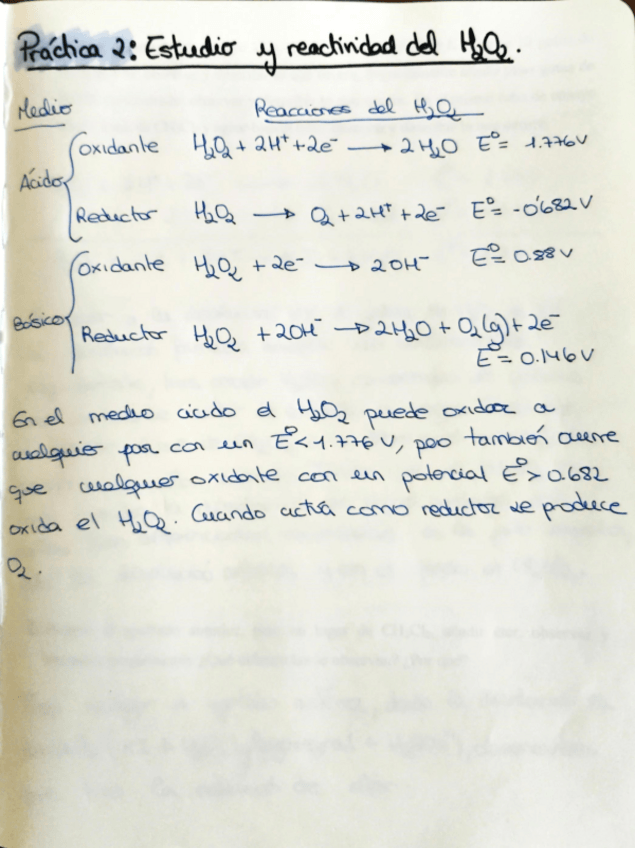 Práctica 2: Estudio y reactividad del H₂O₂.
Medio Reacciones del H₂O₂
Ácido
Oxidante H₂O₂ + 2H⁺ + 2e⁻ → 2H₂O Eº = 1.776V
Reductor H₂O₂ → O₂ + 2H⁺ + 2e⁻ Eº = -0'682 V
Básico
Oxidante H₂O₂ + 2e⁻ → 2OH⁻ Eº = 0.88 V
Reductor H₂O₂ + 2OH⁻ → 2H₂O + O₂(g) + 2e⁻
Eº = 0.146 V
En el medio ácido el H₂O₂ puede oxidar a
cualquier par con un Eº < 1.776 V, pero también ocurre
que cualquier oxidante con un potencial Eº > 0.682
oxida el H₂O₂. Cuando actúa como reductor se produce
O₂.